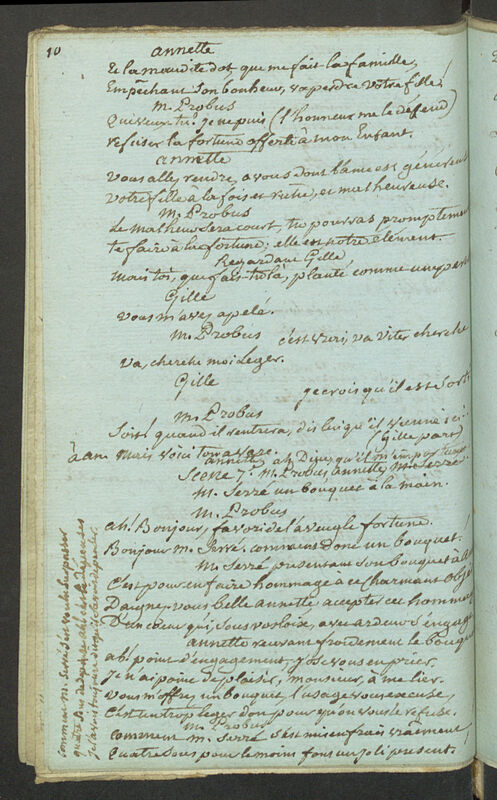 10
annette
Et la maudite dot que me fait la famille,
Empêchant son bonheur, va perdre votre fille!
M. Probus
Que veux tu? je ne puis (l'honneur me le défend)
refuser la fortune offerte à mon Enfant.
annette
vous allez rendre, o vous dont l'ame est généreuse
votre fille à la fois et riche, et malheureuse.
M. Probus
Le malheur sera court, tu pourras promptement
te faire à la fortune; elle est notre élément.
Regardant Gille,
mais toi, que fais-tu là, planté comme un
Gille
vous m'avez apelé.
M. Probus
c'est vrai; va vite; cherche
va, cherche moi Leger.
Gille
je crois qu'il est sorti
M. Probus
Soit! quand il rentrera, dis lui qu'il vienne ici.
(Gille part)
à an. mais voici ton avare.
annette, ah Dieu, qu'il m'importune
Scene 7. M. Probus, annette, M. Serré
M. Serré un bouquet à la main.
M. Probus
ah! Bonjour, favori de l'aveugle fortune.
Bonjour M. Serré. comment donc un bouquet!
M. Serré présentant son bouquet à
C'est pour en faire hommage à ce charmant objet
Daignez-vous belle annette accepter cet hommage
D'un coeur qui, sous vos loix, avec ardeur s'engage
annette recevant froidement le bouquet
ah! point d'engagement, j'ose vous en prier.
je n'ai point de plaisir, monsieur, à me lier.
vous m'offrez un bouquet, l'usage vous excuse,
c'est un trop leger don pour qu'on vous le refuse.
M. Probus
comment M. Serré s'est mis en frais vraiment
quatre sous pour le moins font un joli present.
comment M. Serré s'est
quatre sous